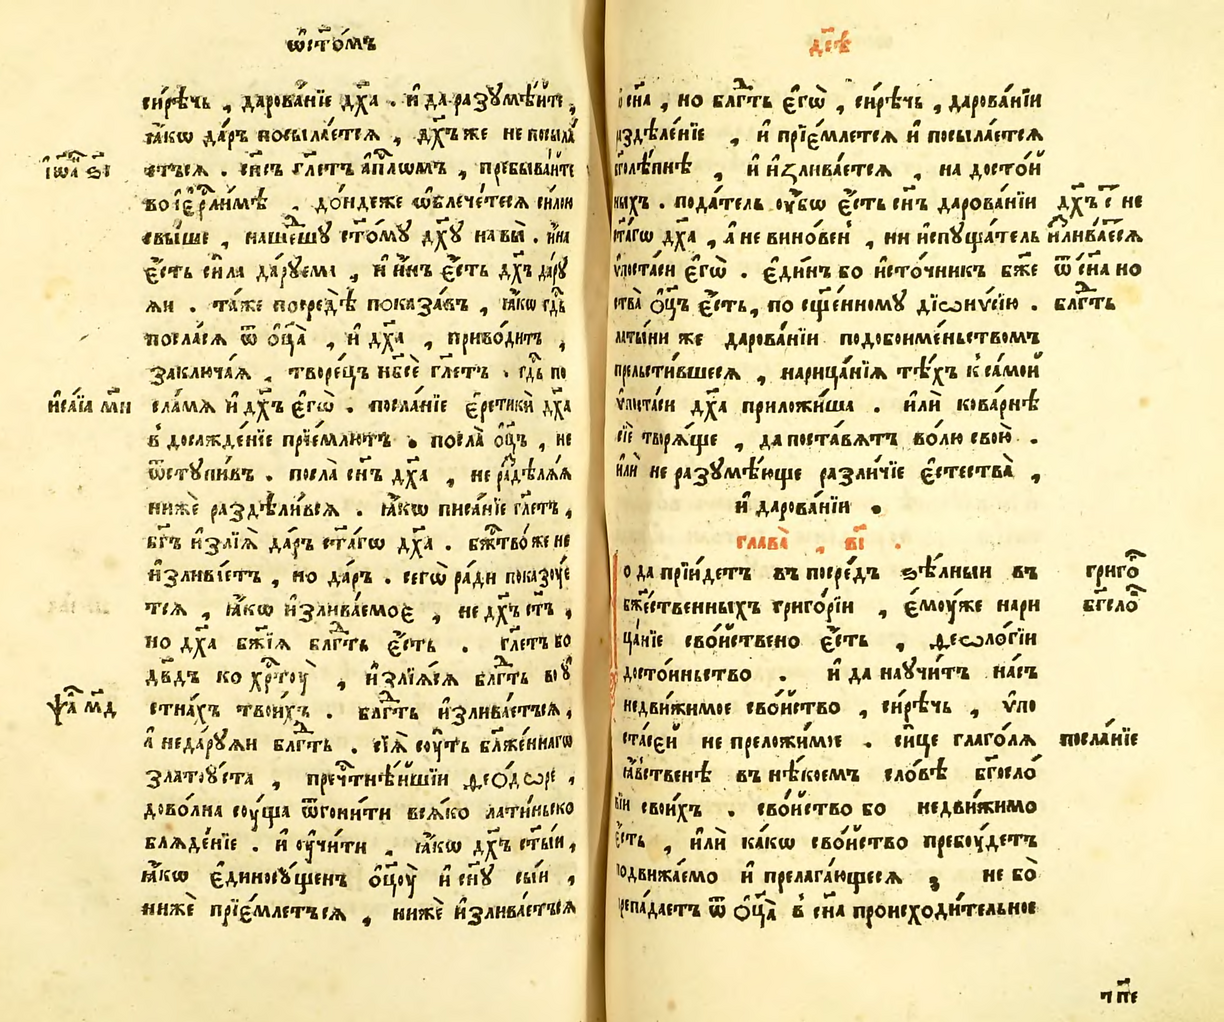 ѡ҆ст҃ѡ́мъ
си́рѣчь , дарова́нїе дх҃а . и҆ да разꙋмѣ́йте ,
ꙗ҆́кѡ да́ръ посыла́етсѧ , дх҃ъ же не посыла́
етъсѧ . сп҃съ гл҃етъ а҆пⷭ҇лѡмъ , пребыва́йте
і҆ѡа҃ ѕ҃і
во і҆ер҃ли́мѣ , до́ндеже ѡ҆блече́тесѧ си́лою
свы́ше , наше́дшꙋ ст҃о́мꙋ дх҃ꙋ на вы̀ . и҆́на
є҆́сть си́ла дарꙋ́ема , и҆ и҆́нъ є҆́сть дх҃ъ дарꙋ́
ѧи . та́же посредѣ̀ показа́въ , ꙗ҆́кѡ гдⷭ҇ь
посла́сѧ ѿ ѻ҆ц҃а̀ , и҆ дх҃а , приво́дитъ ,
заключа́ѧ , творе́цъ нб҃сѐ гл҃етъ . гдⷭ҇ь по
сла́мѧ и҆ дх҃ъ є҆гѡ̀ . посла́нїе є҆ретикѝ дх҃а
и҆са́їа м҃и
в̾ досажде́нїе прїе́млютъ . посла̀ ѻ҆ц҃ъ , не
ѿстꙋпи́въ . посла̀ сн҃ъ дх҃а , не раздѣлѧ́ѧ
нижѐ раздѣли́всѧ . ꙗ҆́кѡ писа́нїе гл҃етъ ,
бг҃ъ и҆злїѧ̀ да́ръ ст҃а́гѡ дх҃а . бж҃ество́ же не
и҆злива́етъ , но да́ръ . сегѡ̀ ра́ди показꙋ́е
тсѧ , ꙗ҆́кѡ и҆злива́емоє , не дх҃ъ ст҃ъ ,
но дх҃а бж҃їѧ блгⷣть є҆́сть . гл҃етъ бо
дв҃дъ ко хрⷭ҇тоу̀ , и҆злїѧ́сѧ блгⷣть во оу҆
стна́хъ твои́хъ . блгⷣть и҆злива́етъсѧ ,
ѱа҃ м҃д
а҆ недарꙋ́ѧи блгⷣть . сїѧ̀ соу́ть бл҃же́ннагѡ
златоу́ста , пречⷭ҇тнѣ́йшїи ѳеѻдѡре ,
дово́лна соу́ща ѿгони́ти всѧ́ко лати́ньско
блѧде́нїе . и҆ оу҆чи́ти , ꙗ҆́кѡ дх҃ъ ст҃ы́и ,
ꙗ҆́кѡ є҆диносꙋ́щенъ ѻ҆ц҃оу̀ и҆ сн҃ꙋ сы́и ,
нижѐ прїе́млетъсѧ , нижѐ и҆злива́етъсѧ
дс҃ѣ
сн҃а , но блгⷣть є҆гѡ̀ , си́рѣчь , дарова́нїи
раздѣле́нїе , и҆ прїе́млетсѧ и҆ посыла́етсѧ
и҆ и҆злива́етсѧ , на досто́й
ныхъ . пода́тель оу҆́бѡ є҆́сть сн҃ъ дарова́нїи
дх҃ъ с҃ не
ст҃а́гѡ дх҃а , а҆ не вино́вен̾ , ни и҆спꙋща́тель
и҆злива́есѧ
ѵ҆поста́си є҆гѡ̀ . є҆ди́нъ бо и҆сто́чникъ бже
ѿ сн҃а но
ства̀ ѻ҆ц҃ъ є҆́сть , по сщ҃е́нномꙋ дїѡни́сїю .
блгⷣть
латы́ни же дарова́нїи подобоиме́ньствомъ
прельсти́вшеесѧ , нарица́нїѧ тѣ́хъ к̾ са́мой
ѵ҆поста́си дх҃а приложи́ша . и҆лѝ кова́рнѣ
сїѐ творѧ́ще , да поста́вѧтъ во́лю свою̀ .
и҆лѝ не разꙋмѣ́юще разли́чїе є҆стества̀ ,
и҆ дарова́нїи .
глава̀ , в҃і .
о да прїи́детъ въ посре́дъ ѕѣ́лныи въ
григо҃
бж҃е́ственныхъ григо́рїи , є҆моу́же нари
бг҃сло
ца́нїе сво́йствено є҆́сть , ѳеѡло́гїи
досто́иньство . и҆ да наꙋчи́тъ на́съ
недви́жимое сво́йство , си́рѣчь , ѵ҆по
ста́сей не преложи́мое . си́це глаго́лѧ
посла́нїе
ꙗ҆́вственѣ въ нѣ́коемъ сло́вѣ бг҃осло́
вїи свои́хъ . сво́йство бо недви́жимо
є҆́сть , и҆лѝ ка́кѡ сво́йство пребоу́детъ
подвиза́емо и҆ прелага́ющеесѧ ; не бо̀
препада́етъ ѿ ѻ҆ц҃а̀ в̾ сн҃а происходи́тельное